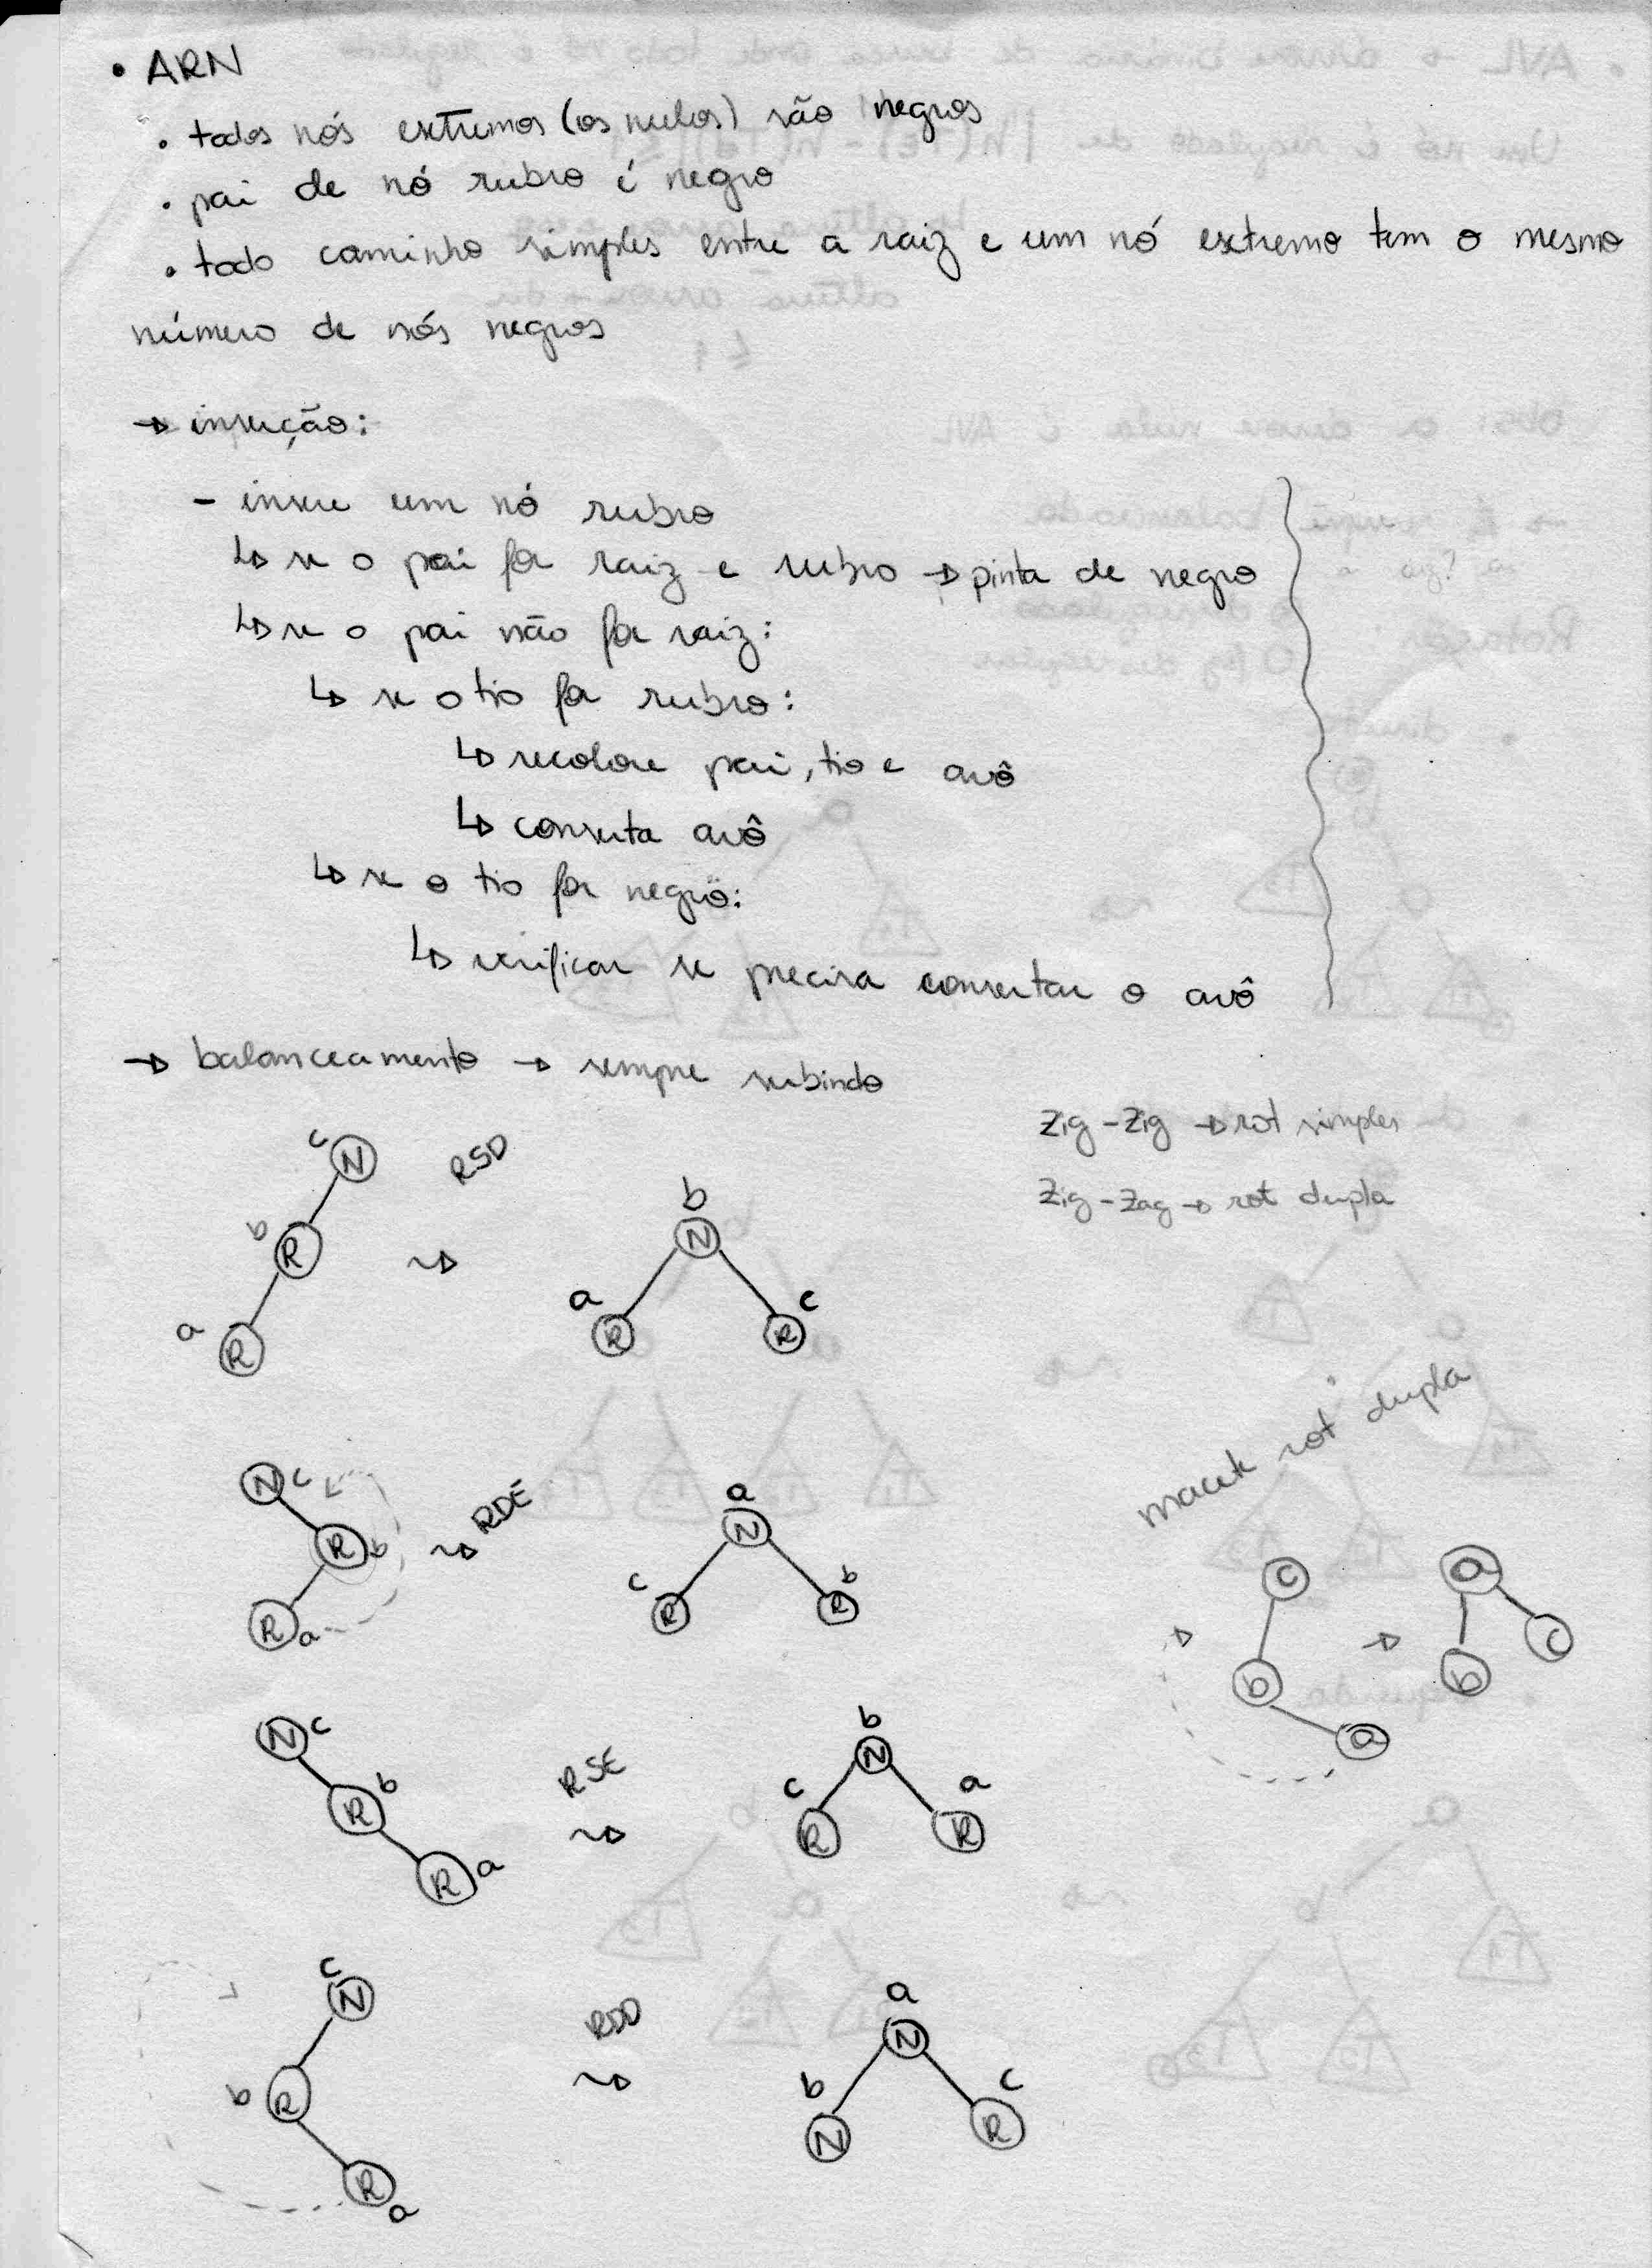 • ARN
• todos nós extremos (os nulos) são negros
• pai de nó rubro é negro
• todo caminho simples entre a raiz e um nó extremo tem o mesmo
número de nós negros
→ inserção:
- insere um nó rubro
↳ se o pai for raiz e rubro → pinta de negro
↳ se o pai não for raiz:
↳ se o tio for rubro:
↳ recolore pai, tio e avô
↳ conserta avô
↳ se o tio for negro:
↳ verificar se precisa consertar o avô
→ balanceamento → sempre subindo
zig-zig → rot simples
zig-zag → rot dupla
c N
RSD
b R
a R
b
N
a
R
c
R
macete rot dupla
N c
R b
R a
RDE
a
N
c
R
b
R
c
b
a
a
b
c
N c
R b
R a
RSE
b
N
c
R
a
R
c
N
b R
R a
RDD
a
N
b
N
c
R